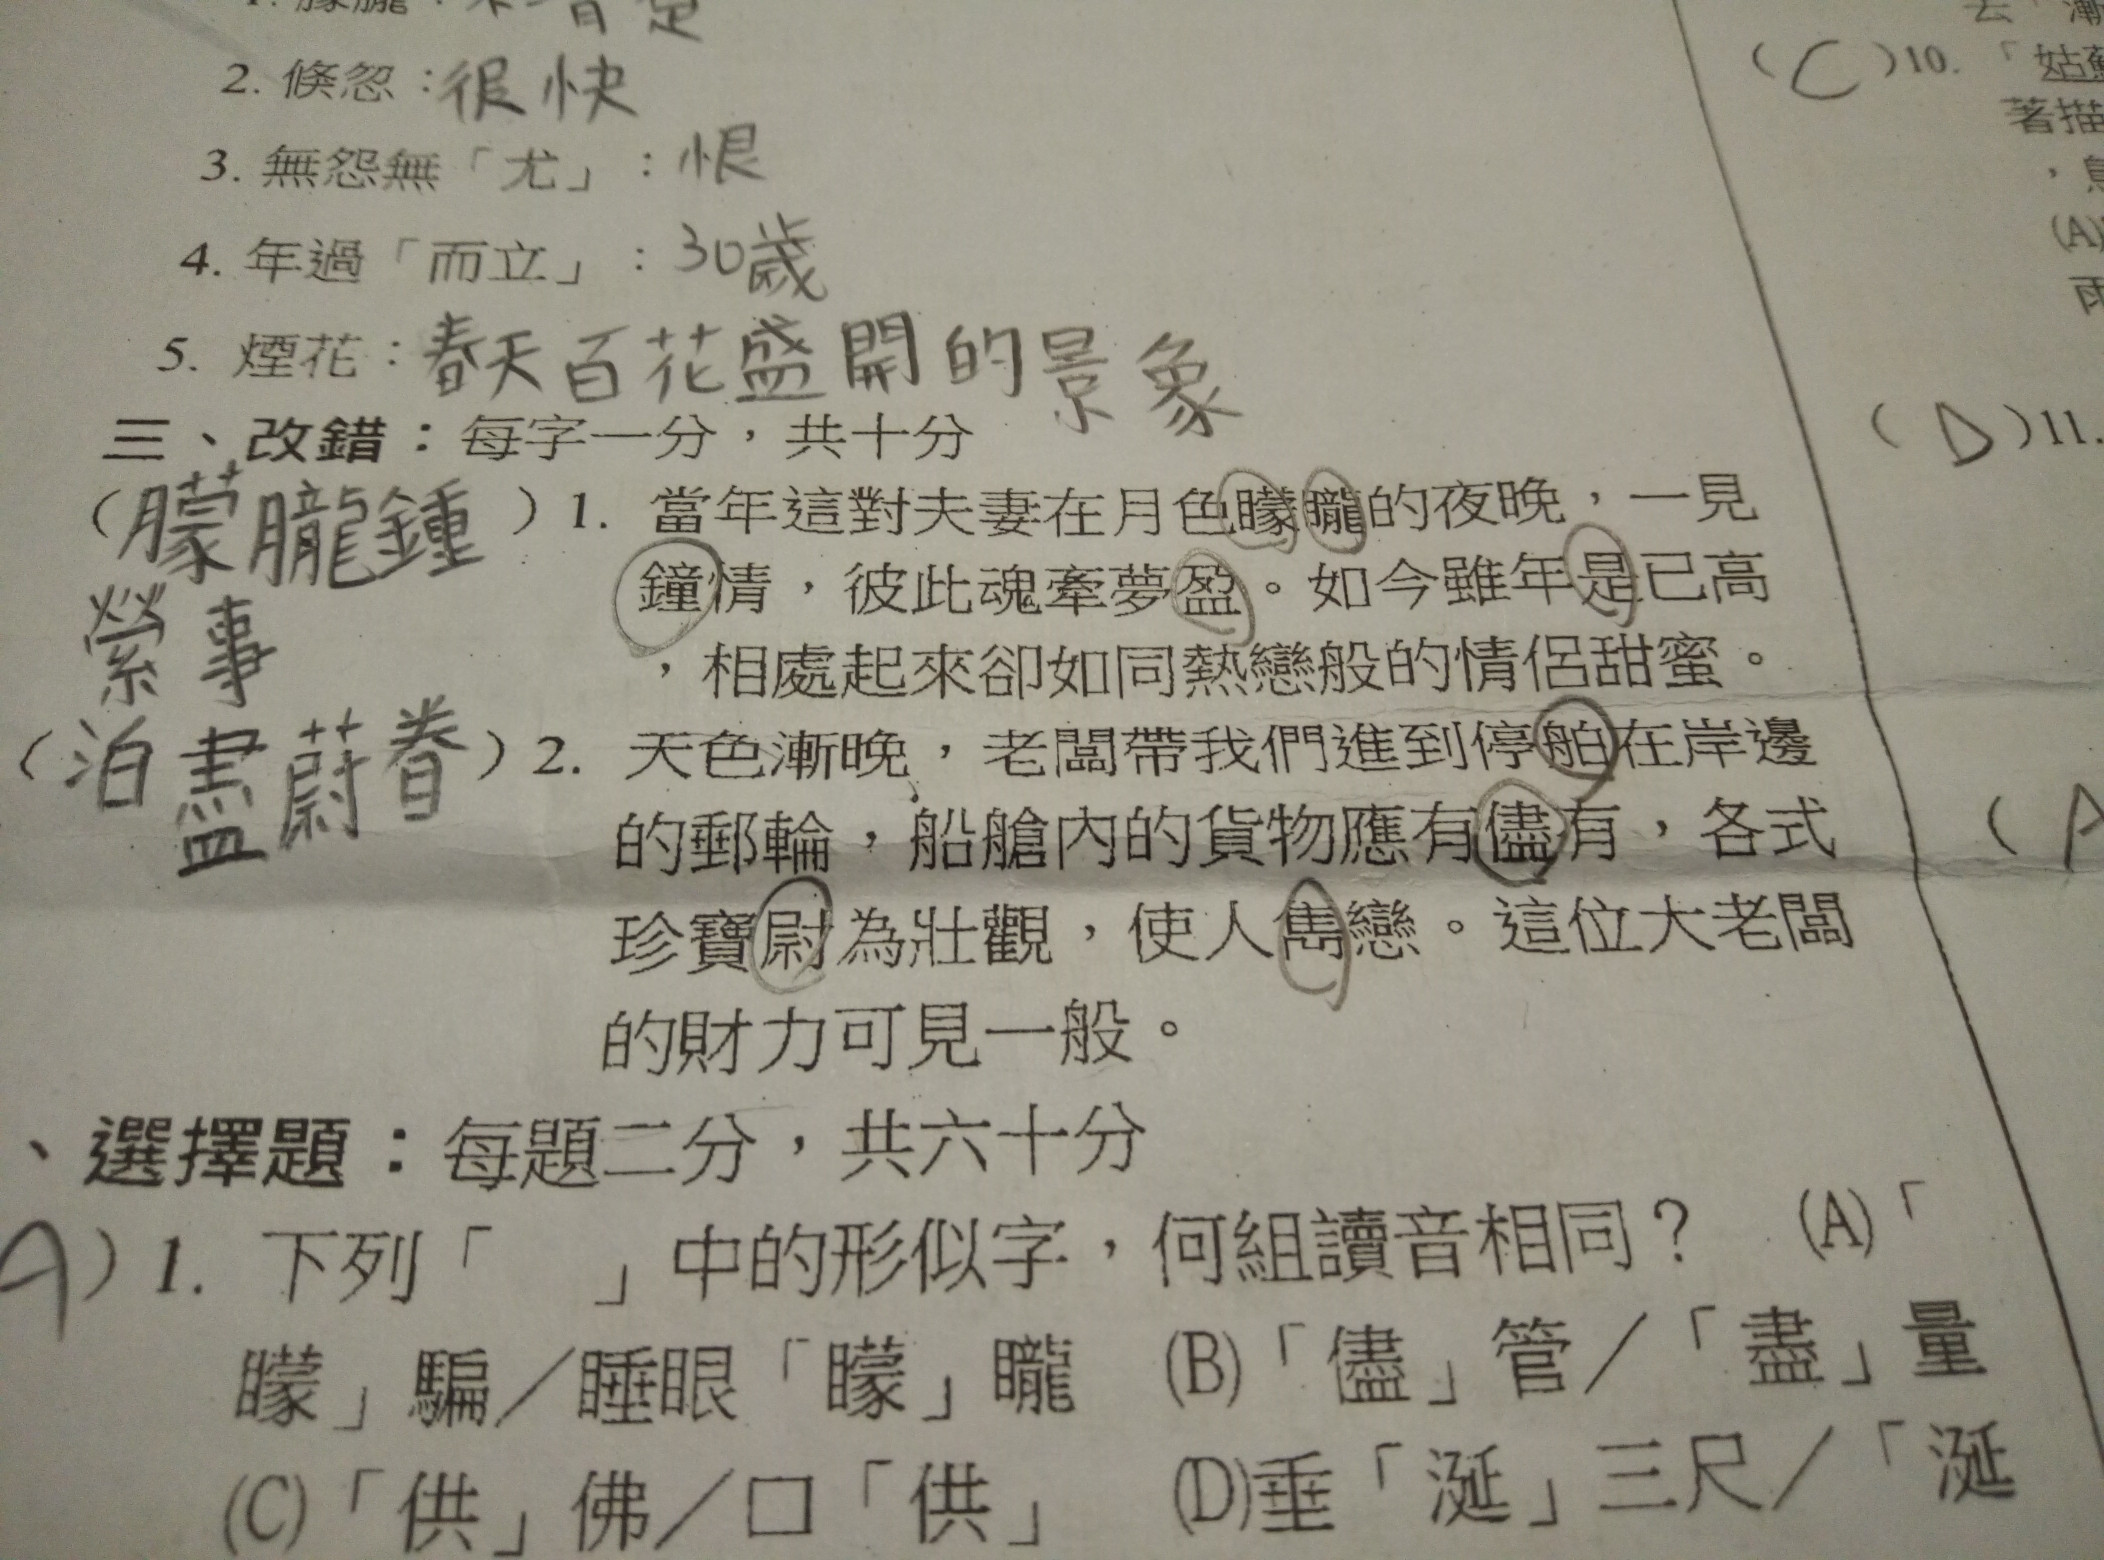 1. 朦朧：不清楚
2. 倏忽：很快
3. 無怨無「尤」：恨
4. 年過「而立」：30歲
5. 煙花：春天百花盛開的景象
三、改錯：每字一分，共十分
（朦朧鍾縈事）1. 當年這對夫妻在月色矇曨的夜晚，一見
鐘情，彼此魂牽夢盈。如今雖年是已高
，相處起來卻如同熱戀般的情侶甜蜜。
（泊盡蔚眷）2. 天色漸晚，老闆帶我們進到停舶在岸邊
的郵輪，船艙內的貨物應有儘有，各式
珍寶尉為壯觀，使人雋戀。這位大老闆
的財力可見一般。
、選擇題：每題二分，共六十分
A）1. 下列「　」中的形似字，何組讀音相同？ (A)「
矇」騙／睡眼「矇」矓 (B)「儘」管／「盡」量
(C)「供」佛／口「供」 (D)垂「涎」三尺／「涎
去「漸
（C）10.「姑蘇
著描
，
(A)
雨
（D）11.
（A